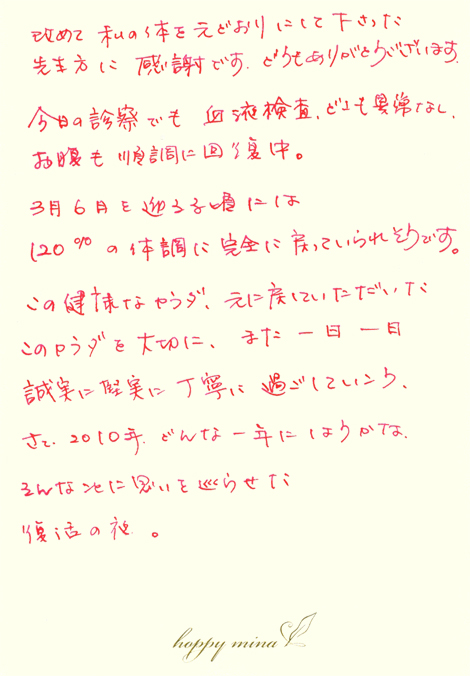 改めて 私の体を元どおりにして下さった
先生方に 感謝です。どうもありがとうございます。
今日の診察でも 血液検査、どこも異常なし、
お腹も 順調に回復中。
3月6日を迎える頃には
120%の体調に完全に戻っていられそうです。
この健康なカラダ、元に戻していただいた
このカラダを大切に、また 一日 一日
誠実に 堅実に 丁寧に 過ごしていこう、
さて、2010年、どんな一年になるかな、
そんなことに思いを巡らせた
復活の夜。
happy mina